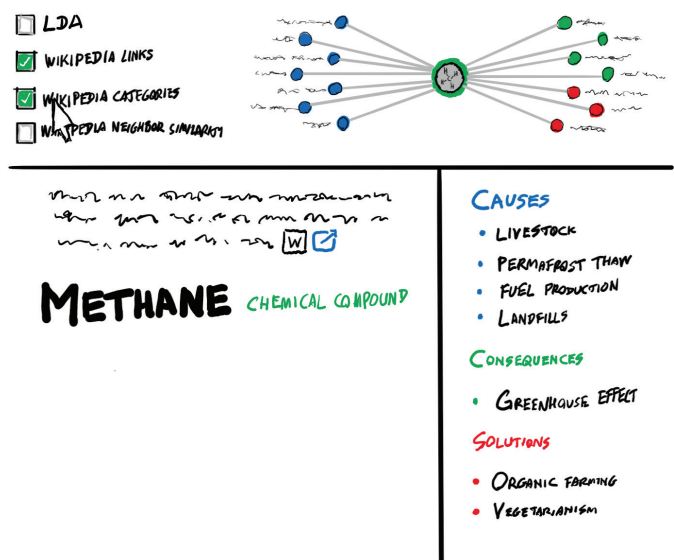 LDA
WIKIPEDIA LINKS
WIKIPEDIA CATEGORIES
WIKIPEDIA NEIGHBOR SIMILARITY
W
METHANE CHEMICAL COMPOUND
CAUSES
• LIVESTOCK
• PERMAFROST THAW
• FUEL PRODUCTION
• LANDFILLS
CONSEQUENCES
• GREENHOUSE EFFECT
SOLUTIONS
• ORGANIC FARMING
• VEGETARIANISM